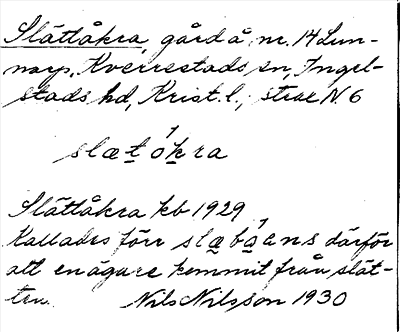 Slättåkra, gård å nr. 14 Lun-
narp, Kverrestads sn, Ingel-
stads hd, Krist. l., strax N. 6
slætókra
Slättåkra kb 1929
Kallades förr slæbóans därför
att en ägare kommit från slät-
ten. Nils Nilsson 1930